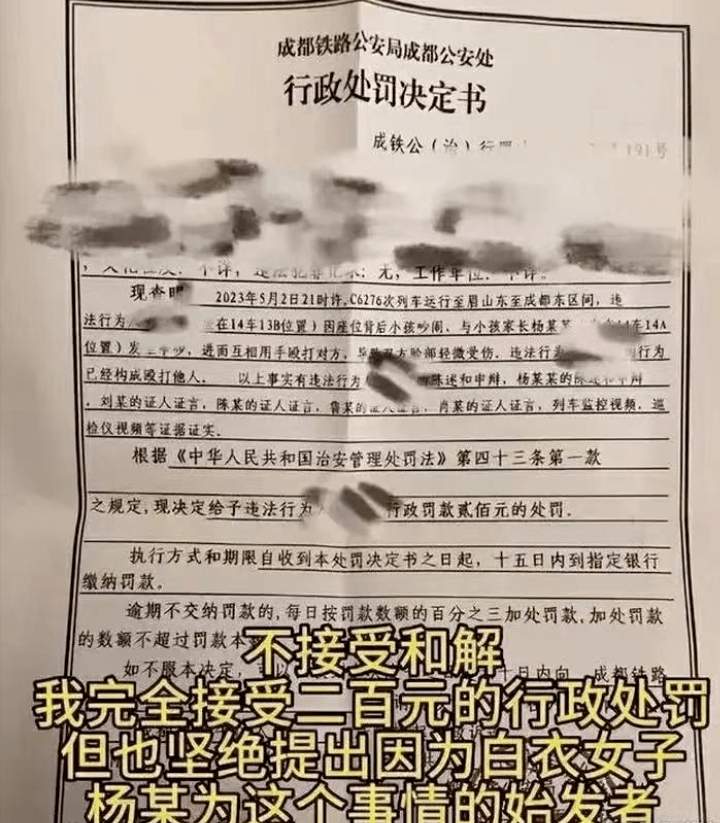 成都铁路公安局成都公安处
行政处罚决定书
成铁公（治）行罚 191号
不详，违法犯罪记录：无，工作单位：不详。
现查明 2023年5月2日21时许，C6276次列车运行至眉山东至成都东区间，违
法行为 在14车13B位置）因座位背后小孩吵闹，与小孩家长杨某某 14车14A
位置）发生争吵，进而互相用手殴打对方，导致双方脸部轻微受伤。违法行为 的行为
已经构成殴打他人。 以上事实有违法行为 陈述和申辩，杨某某的陈述和申辩
，刘某的证人证言，陈某的证人证言，鲁某的证人证言，肖某的证人证言，列车监控视频，巡
检仪视频等证据证实。
根据《中华人民共和国治安管理处罚法》第四十三条第一款
之规定，现决定给予违法行为 行政罚款贰佰元的处罚．
执行方式和期限自收到本处罚决定书之日起，十五日内到指定银行
缴纳罚款。
逾期不交纳罚款的，每日按罚款数额的百分之三加处罚款，加处罚款
的数额不超过罚款本
如不服本决定， 日内向 成都铁路
不接受和解
我完全接受二百元的行政处罚
但也坚绝提出因为白衣女子
杨某为这个事情的始发者